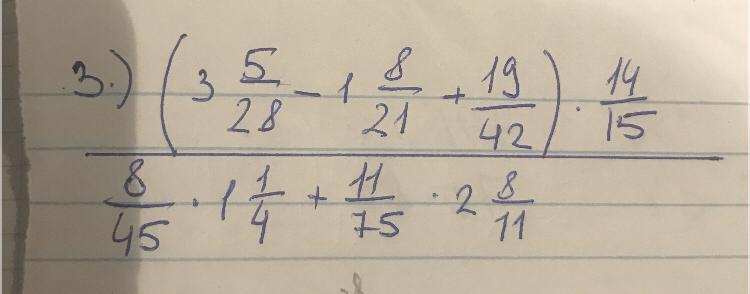 3.) (3 5/28 - 1 8/21 + 19/42) · 14/15
8/45 · 1 1/4 + 11/75 · 2 8/11